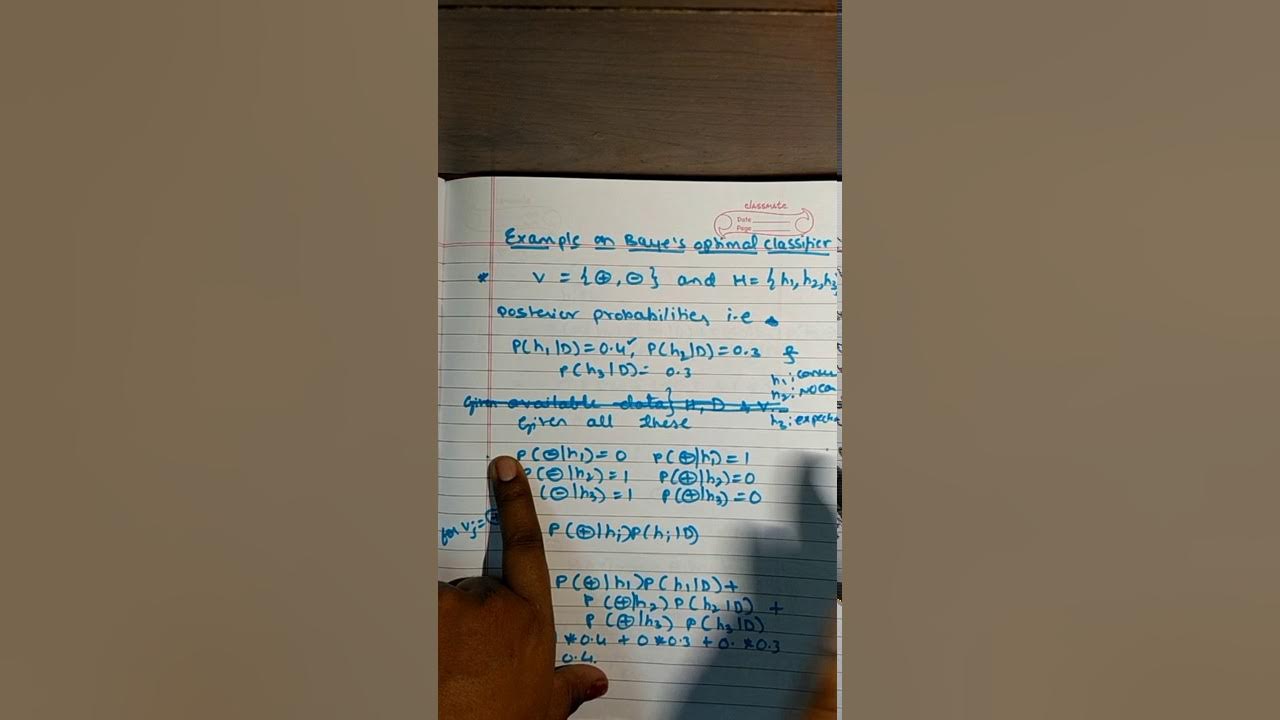 classmate
Date
Page
Example on Baye's optimal classifier
* V = {⊕, ⊖} and H = {h1, h2, h3
posterior probabilities, i.e
P(h1|D) = 0.4, P(h2|D) = 0.3 &
P(h3|D) = 0.3
h1:
h2: NO
Given available data} H, D & V
h3:
Given all these
P(⊖|h1) = 0 P(⊕|h1) = 1
P(⊖|h2) = 1 P(⊕|h2) = 0
(⊖|h3) = 1 P(⊕|h3) = 0
for Vj =
P(⊕|hi)P(hi|D)
P(⊕|h1)P(h1|D) +
P(⊕|h2) P(h2|D) +
P(⊕|h3) P(h3|D)
*0.4 + 0*0.3 + 0.*0.3
0.4.